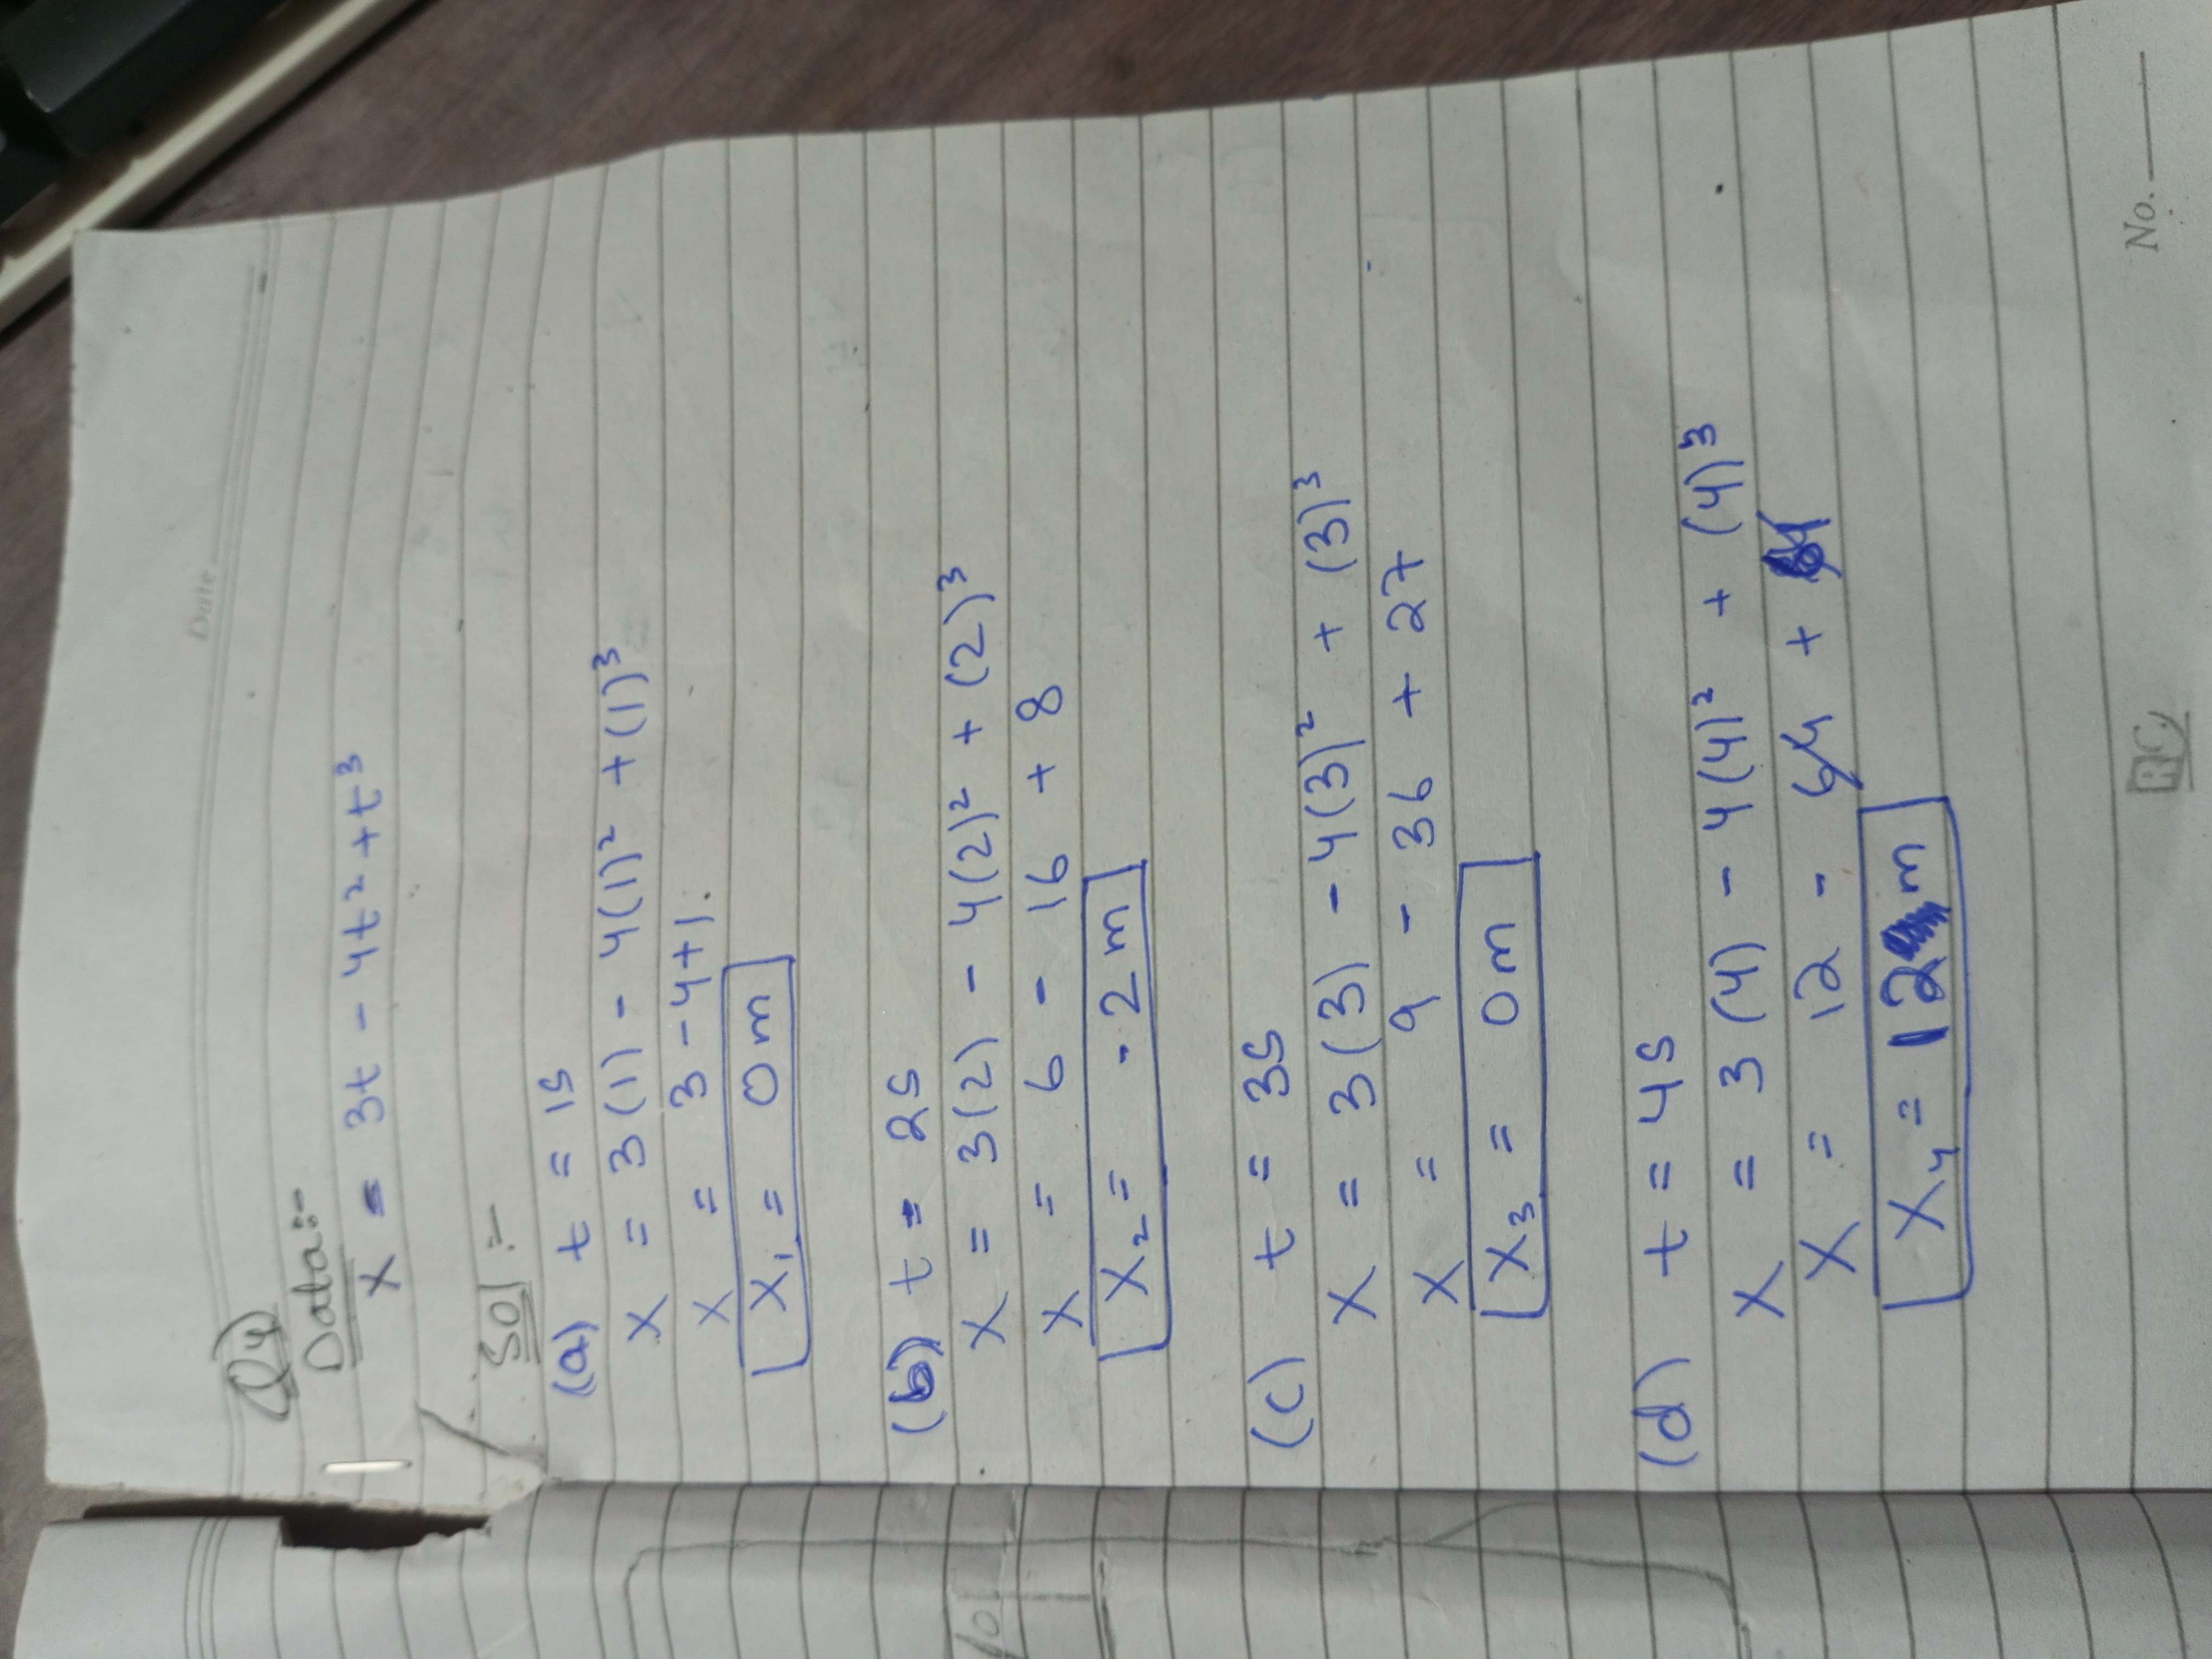 Date
Q4
Data:-
x = 3t - 4t² + t³
Sol :-
(a) t = 1s
x = 3(1) - 4(1)² + (1)³
x = 3 - 4 + 1.
x₁ = 0 m
(b) t = 2s
x = 3(2) - 4(2)² + (2)³
x = 6 - 16 + 8
x₂ = -2 m
(c) t = 3s
x = 3(3) - 4(3)² + (3)³
x = 9 - 36 + 27
x₃ = 0 m
(d) t = 4s
x = 3(4) - 4(4)² + (4)³
x = 12 - 64 +
x₄ = 12 m
No.